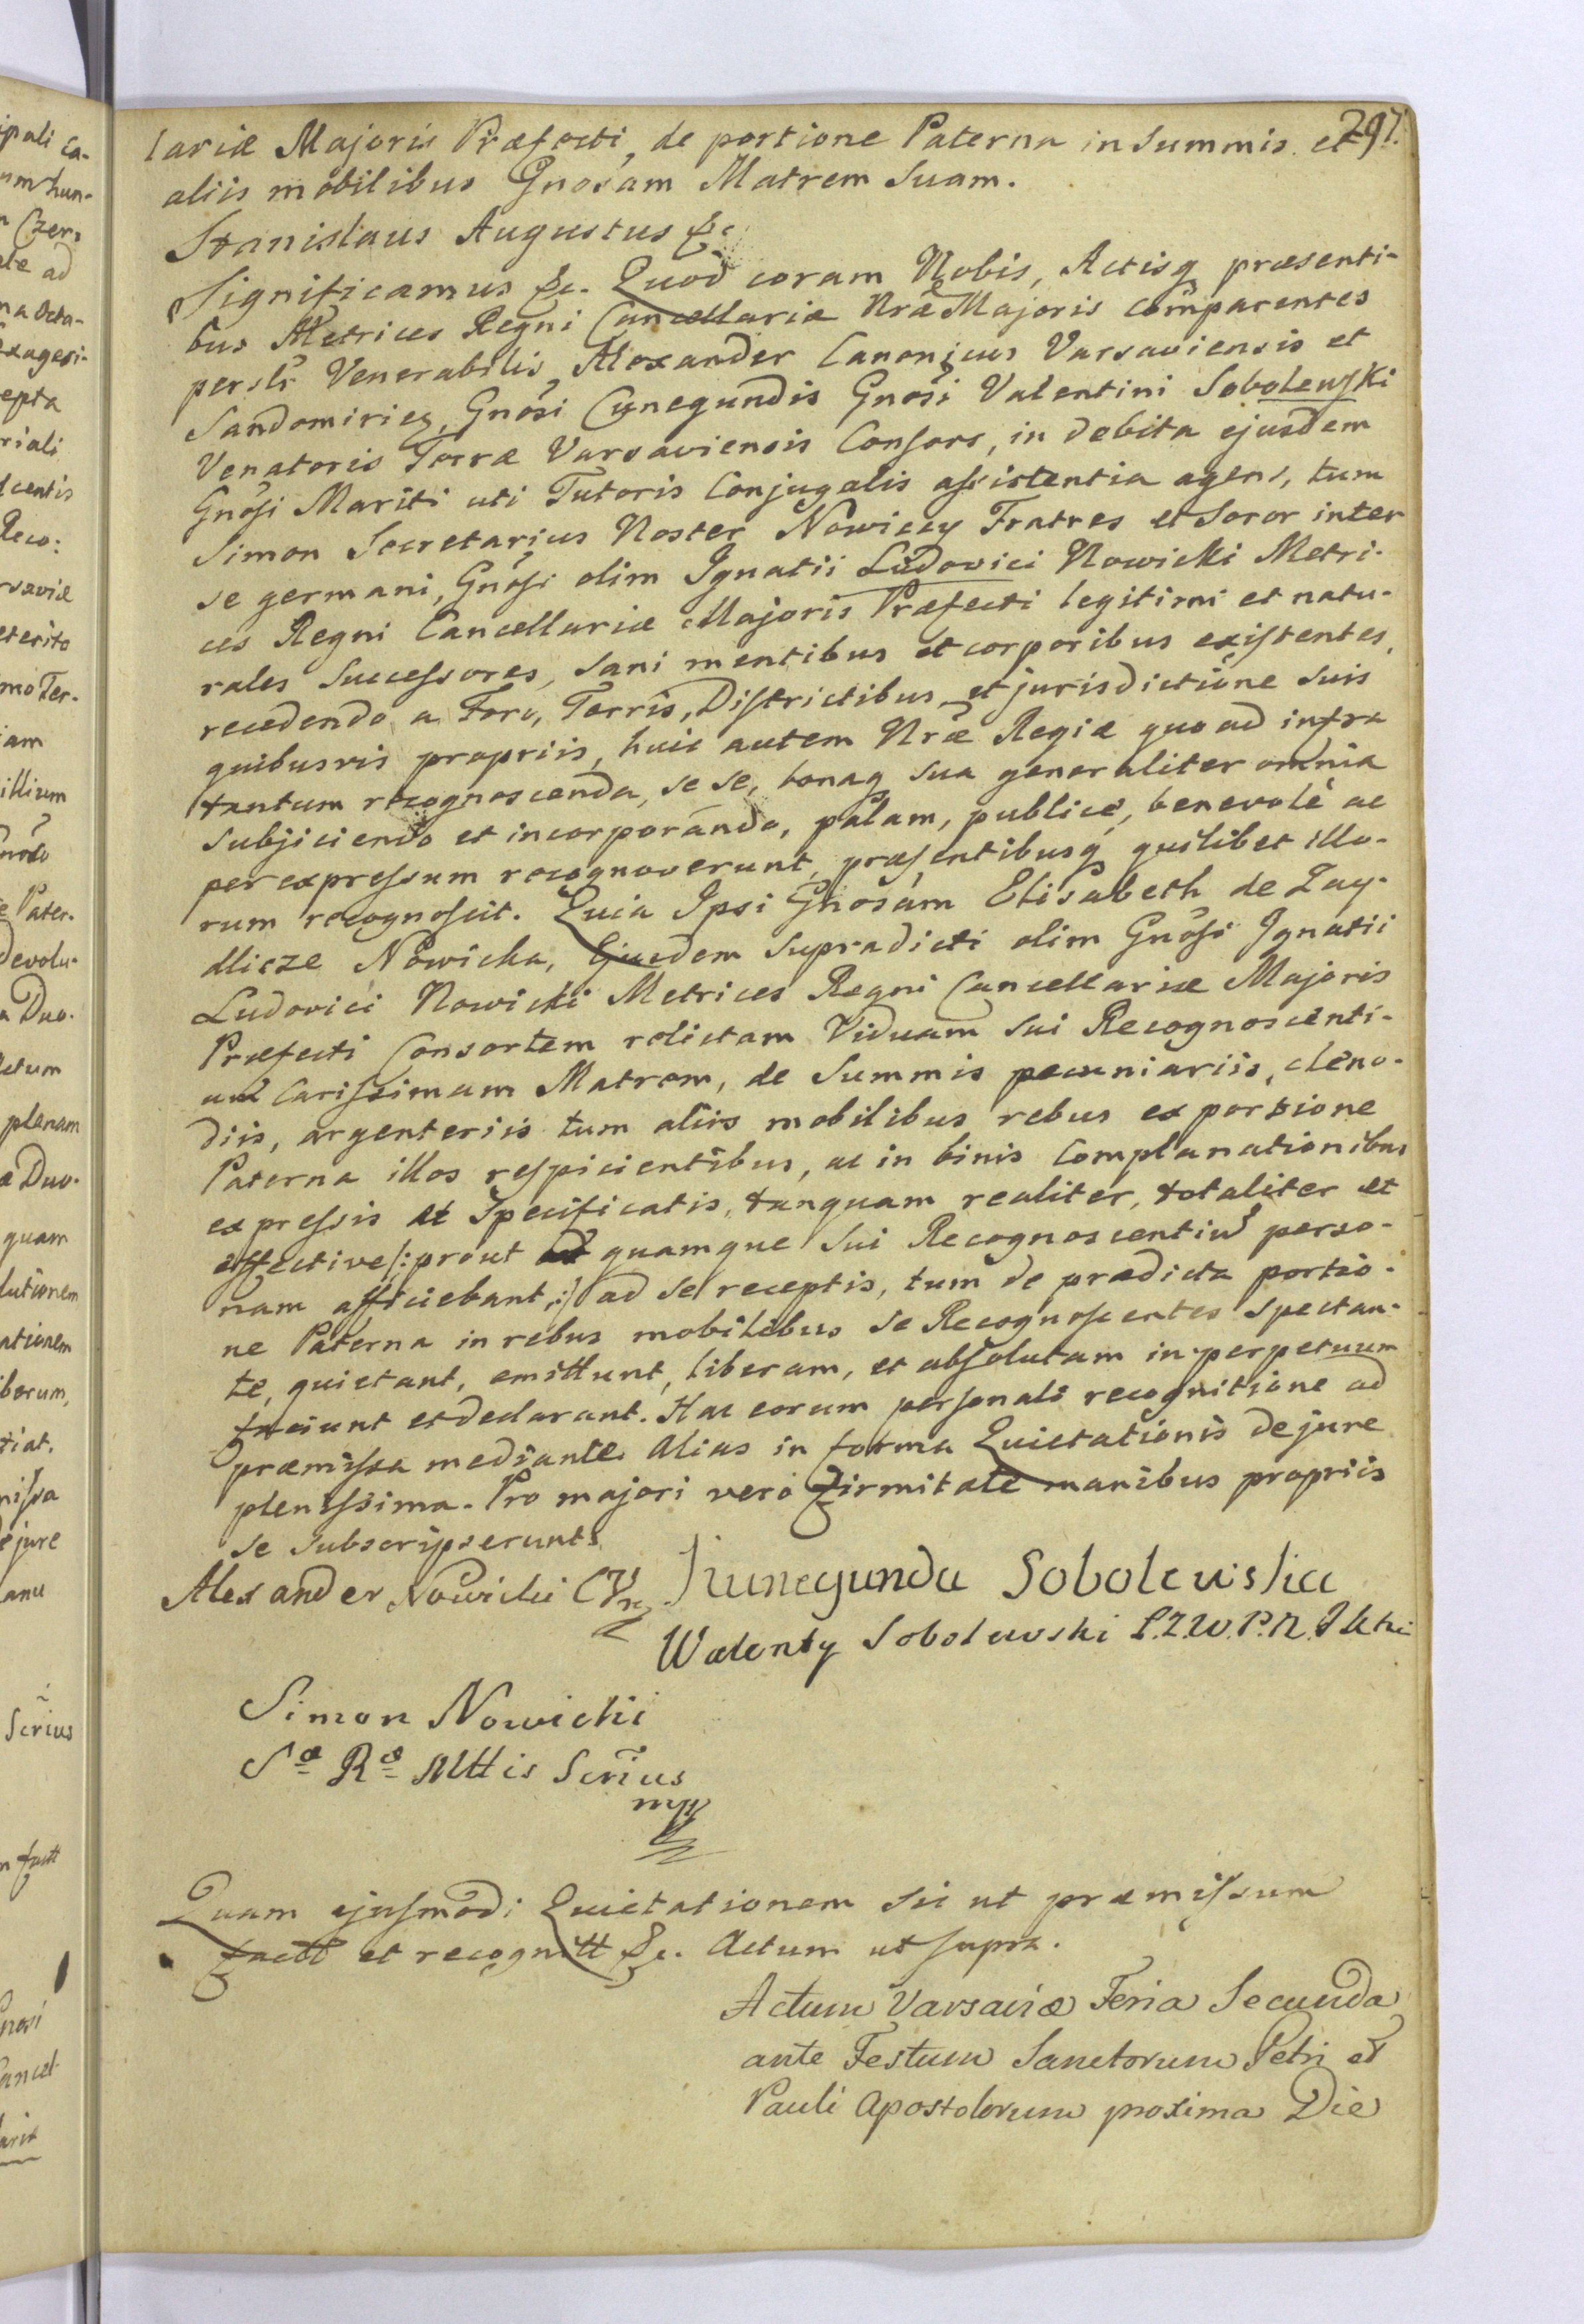 297.
lariæ Majoris Præfecti, de portione Paterna in Summis et
aliis mobilibus Gnosam Matrem Suam.
Stanislaus Augustus &c
Significamus &c. Quod coram Nobis, Actisq præsenti-
bus Metrices Regni Cancellariæ Nræ Majoris comparentes
persłr Venerabilis, Alexander Canonicus Varsaviensis et
Sandomiries, Gnosi Cunegundis Gnosi Valentini Sobolewski
Venatoris Terræ Varsaviensis Consors, in debita ejusdem
Gnosi Mariti uti Tutoris Conjugalis assistentia agens, tum
Simon Secretarius Noster Nowiccy Fratres et Soror inter
se germani, Gnosi olim Ignatii Ludovici Nowicki Metri-
ces Regni Cancellariæ Majoris Præfecti legitimi et natu-
rales Successores, sani mentibus et corporibus existentes,
recedendo a Foro, Terris, Districtibus et jurisdictione suis
quibusvis propriis, huic autem Nræ Regiæ quo ad infra
tantum recognoscenda, se se, bonaq sua generaliter omnia
subjiciendo et incorporando, palam, publice, benevole ac
per expressum recognoverunt, præsentibusq quilibet illo-
rum recognoscit. Quia Ipsi Gnosam Elisabeth de Zay-
dlicze Nowicka, Ejusdem supradicti olim Gnosi Ignatii
Ludovici Nowicki Metrices Regni Cancellariæ Majoris
Præfecti Consortem relictam Viduam sui Recognoscenti-
um Carissimam Matrem, de Summis pecuniariis, cleno-
diis, argenteriis tum aliis mobilibus rebus ex portione
Paterna illos respicientibus, ac in binis Complanationibus
expressis et Specificatis, tanquam realiter, totaliter et
effective /: prout quamque sui Recognoscentium perso-
nam afficiebant, :/ ad se receptis, tum de prædicta portio-
ne Paterna in rebus mobilibus se Recognoscentes spectan-
te, quietant, emittunt, liberam, et absolutam in perpetuum
faciunt et declarant. Hac eorum personali recognitione ad
præmissa mediante. Alias in forma Quietationis de jure
plenissima. Pro majori vero firmitate manibus propriis
se subscripserunt.
Alexander Nowicki
Kunegunda Sobolewska
Walenty Sobolewski Ł.Z.W.P.N.
Simon Nowicki
Sæ Ræ Mttis Scrius
mp
Quam ejusmodi Quietationem sic ut præmissum
factt et recognitt &c. Actum ut supra.
Actum Varsaviæ Feria Secunda
ante Festum Sanctorum Petri et
Pauli Apostolorum proxima Die